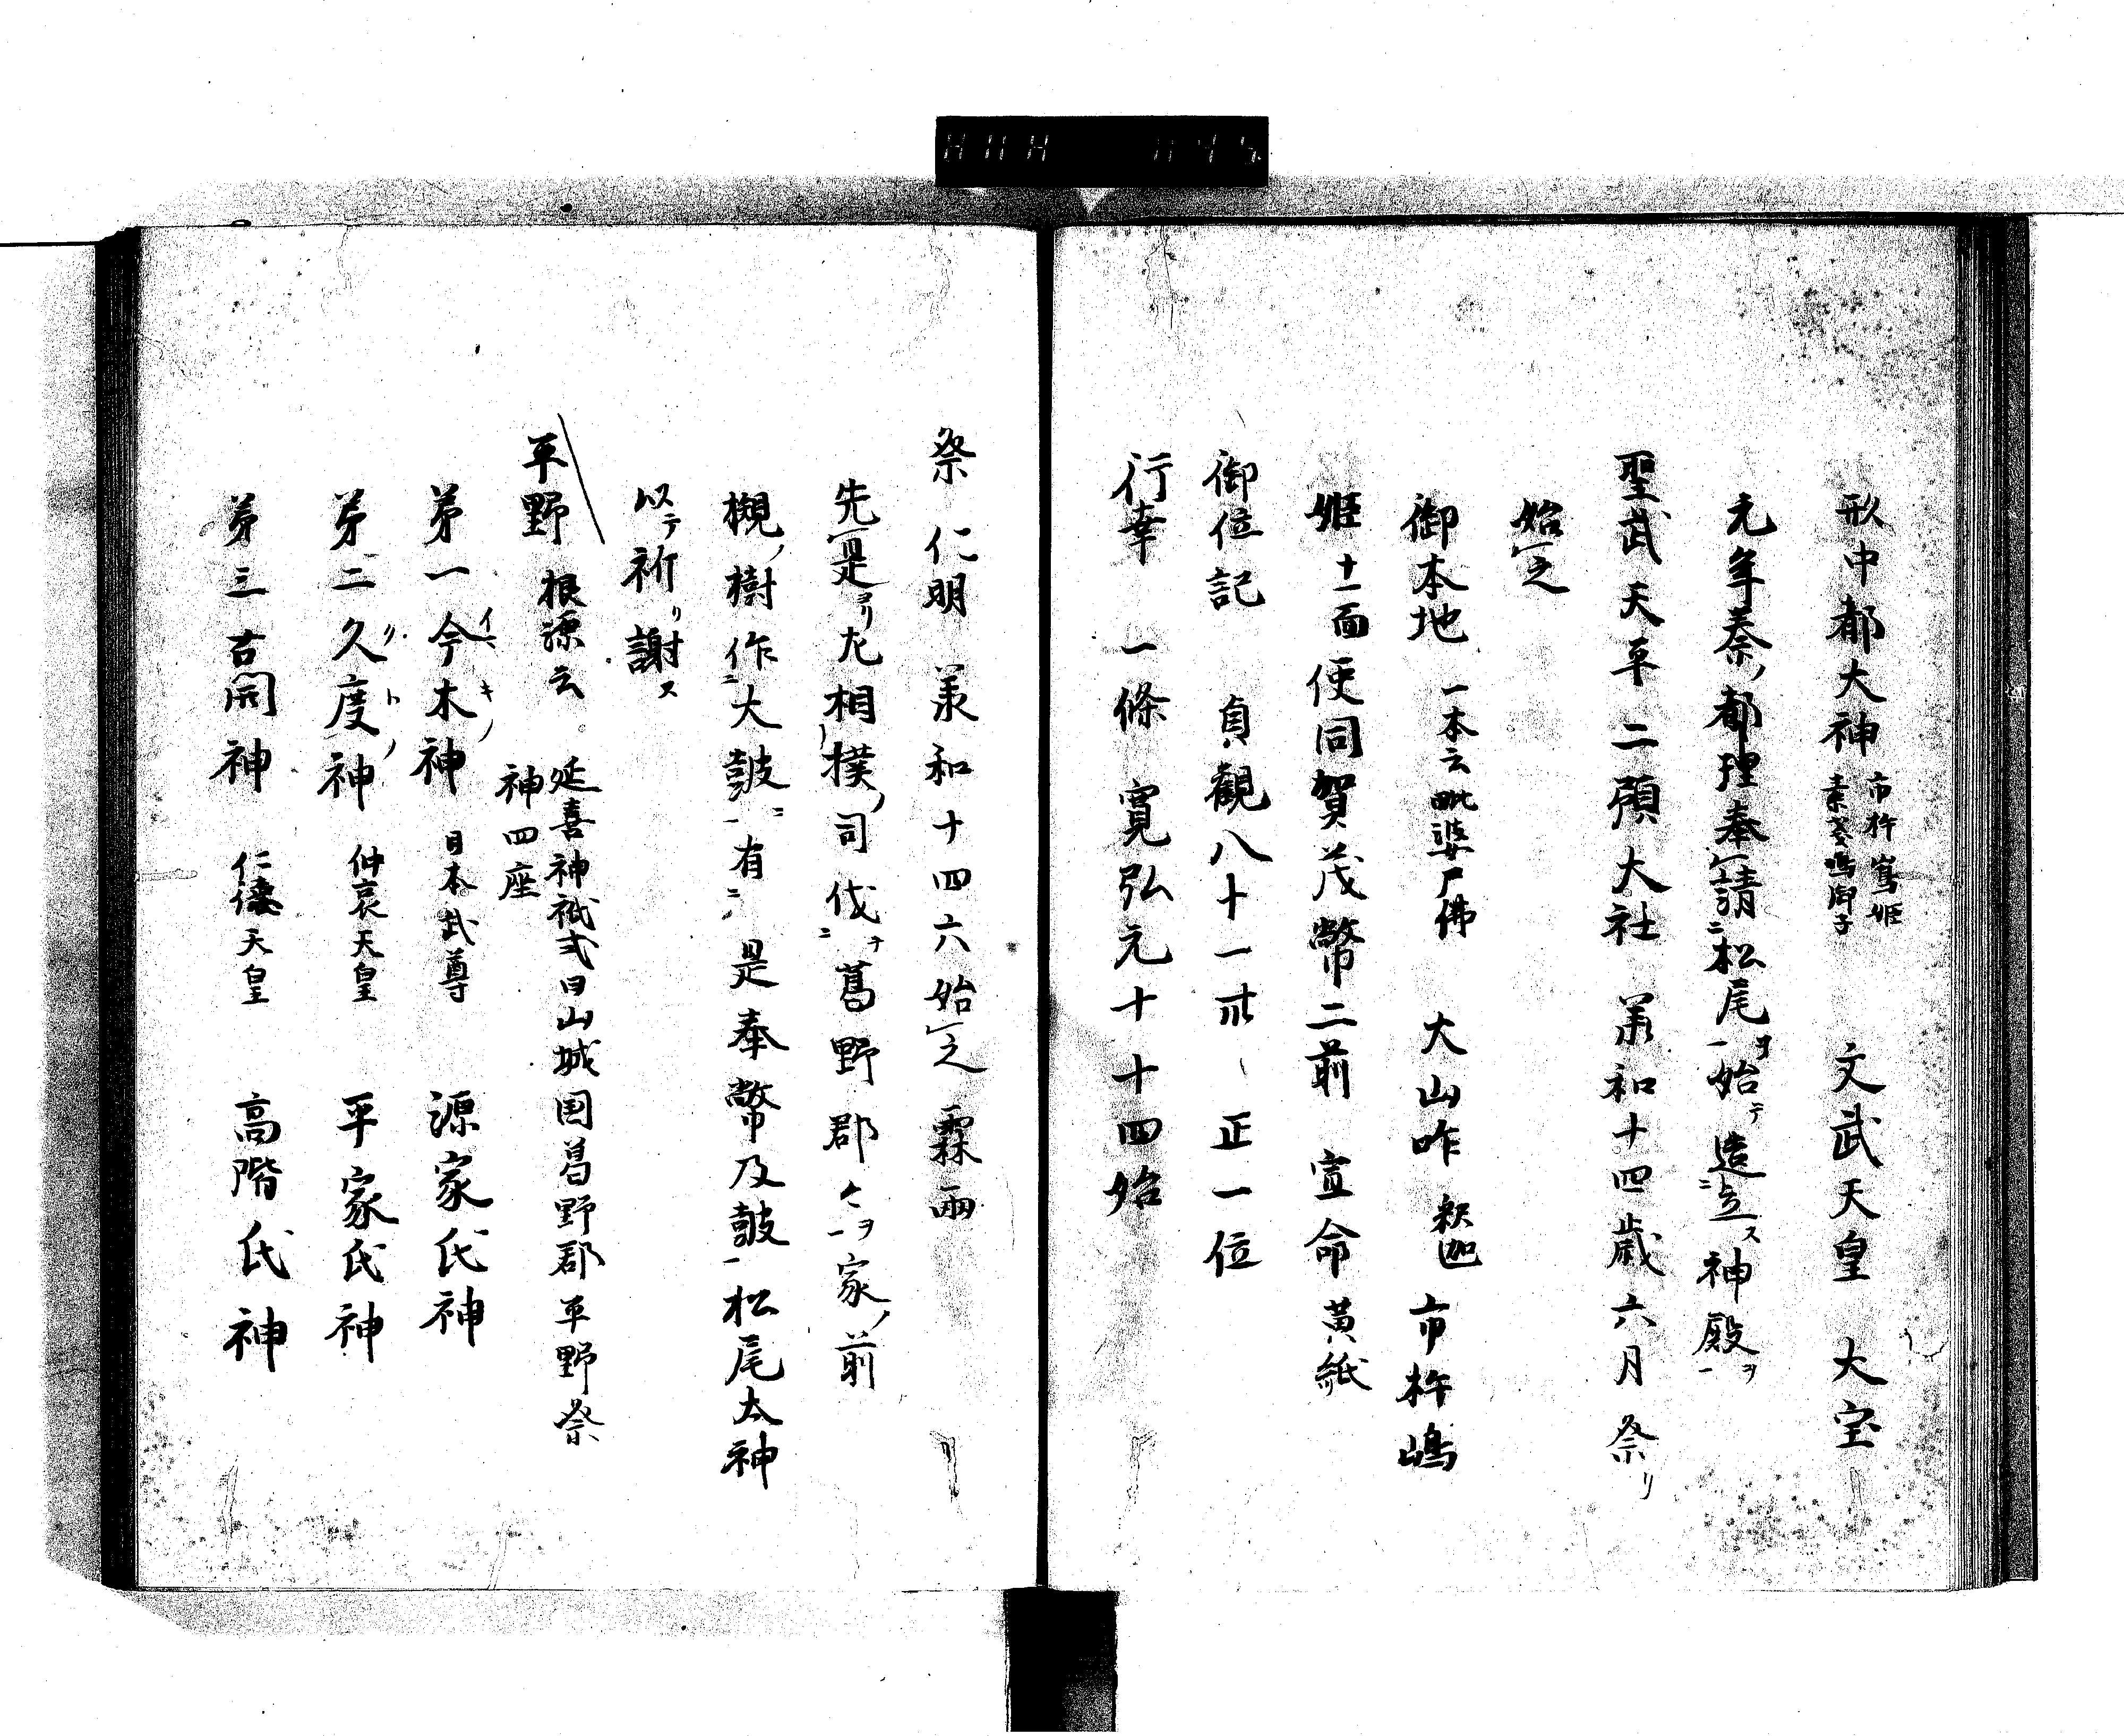 形中都大神 市杵嶌姫 素戔嗚御子 文武天皇 大宝
元年秦ノ都理奉請松尾ヲ始テ造立ス神殿ヲ
聖武天平二預大社 承和十四歳六月祭リ
始之
御本地 一本云毗婆尸佛 大山咋 釈迦 市杵嶋
姫 十一面 使同賀茂幣二前 宣命黄紙
御位記 貞観八十一 正一位
行幸 一條 寛弘元十十四始
祭 仁明 承和十四六始之 霖雨
先是ヨリ左相撲ノ司伐ヲ葛野郡々ヲ家ノ前
槻ノ樹作大皷有是奉幣及皷松尾太神
以テ祈リ謝ス
平野 根源云 延喜神祇式曰山城国葛野郡平野祭
神四座
第一今木ノ神 日本武尊 源家氏神
第二久度ノ神 仲哀天皇 平家氏神
第三古開神 仁徳天皇 高階氏神